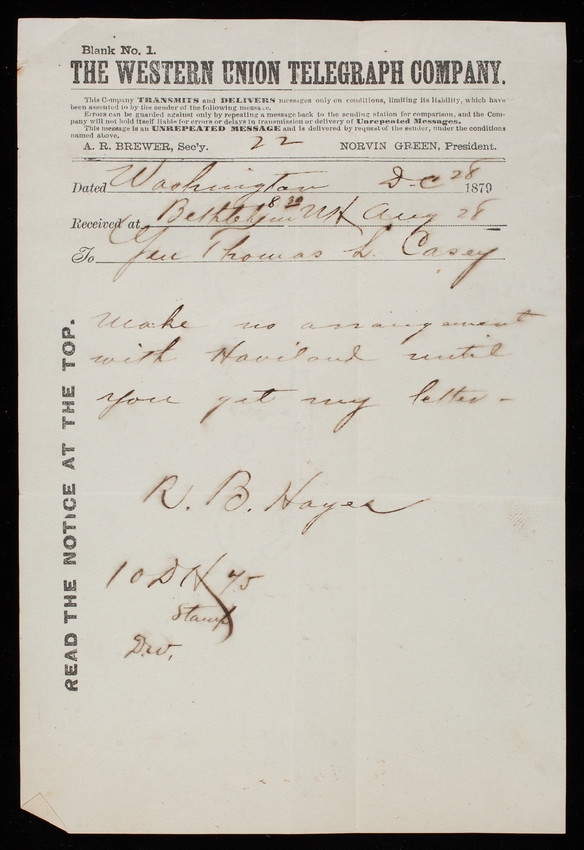 Blank No. 1.
THE WESTERN UNION TELEGRAPH COMPANY.
This Company TRANSMITS and DELIVERS messages only on conditions, limiting its liability, which have
been assented to by the sender of the following message.
Errors can be guarded against only by repeating a message back to the sending station for comparison, and the Com-
pany will not hold itself liable for errors or delays in transmission or delivery of Unrepeated Messages.
This message is an UNREPEATED MESSAGE and is delivered by request of the sender, under the conditions
named above.
A. R. BREWER, Sec'y. 22 NORVIN GREEN, President.
Dated Washington D.C 28 1879
8 30
Received at Bethlehem NH Aug 28
To Gen Thomas L. Casey
Make no arrangement
with Haviland until
you get my letter -
R. B. Hayes
10 DH 75
Stamp
READ THE NOTICE AT THE TOP.